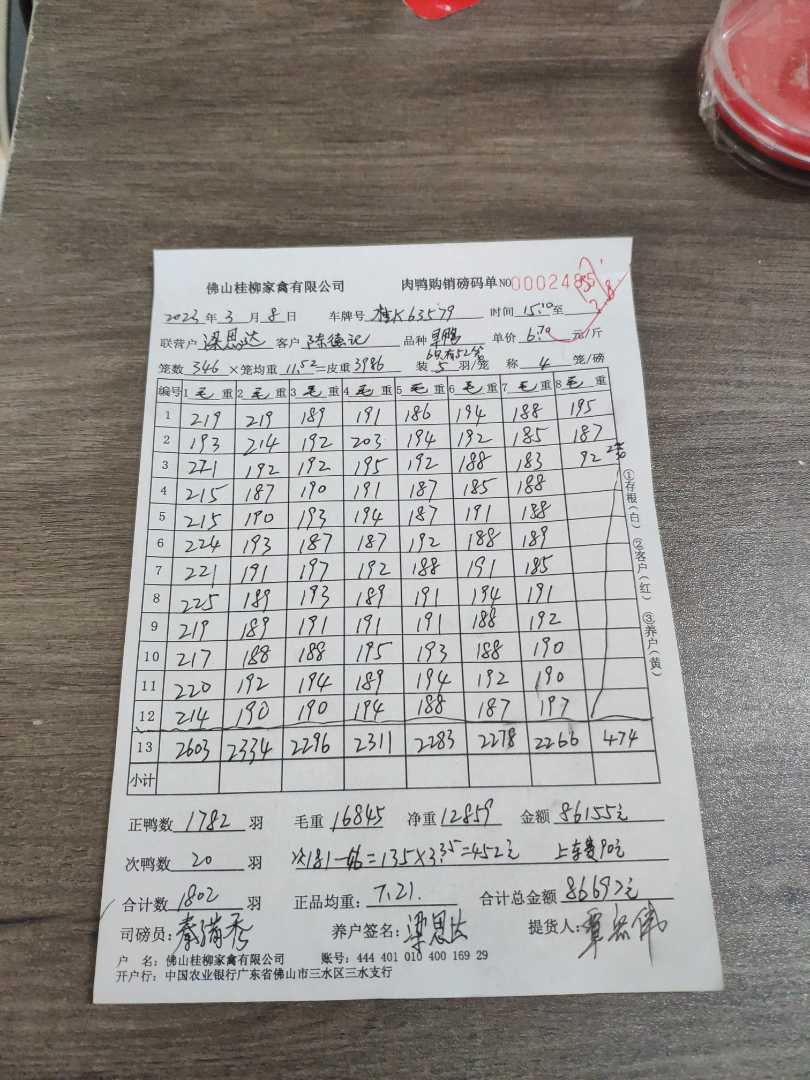 佛山桂柳家禽有限公司 肉鸭购销磅码单 NO 0002485
2023年3月8日 车牌号 桂K63579 时间 15:10至
联营户 梁恩达 客户 陈德记 品种 单价 6.70 元/斤
笼数 346 ×笼均重 11.52 =皮重 3986 装 5 羽/笼 称 4 笼/磅
编号 1毛重 2毛重 3毛重 4毛重 5毛重 6毛重 7毛重 8毛重
1 219 219 189 191 186 194 188 195
2 193 214 192 203 194 192 185 187
3 221 192 192 195 192 188 183 92
4 215 187 190 191 187 185 188
5 215 190 193 194 187 191 188
6 224 193 187 187 192 188 189
7 221 191 197 192 188 191 185
8 225 189 193 189 191 194 191
9 219 189 191 191 191 188 192
10 217 188 188 195 193 188 190
11 220 192 194 189 194 192 190
12 214 190 190 194 188 187 197
13 2603 2334 2296 2311 2283 2278 2266 474
小计
①存根(白) ②客户(红) ③养户(黄)
正鸭数 1782 羽 毛重 16845 净重 12859 金额 86155元
次鸭数 20 羽 次181-46=135×3.35=452元 上车费90元
合计数 1802 羽 正品均重: 7.21. 合计总金额 86697元
司磅员: 秦满秀 养户签名: 梁恩达 提货人:
户 名: 佛山桂柳家禽有限公司 账号: 444 401 010 400 169 29
开户行: 中国农业银行广东省佛山市三水区三水支行